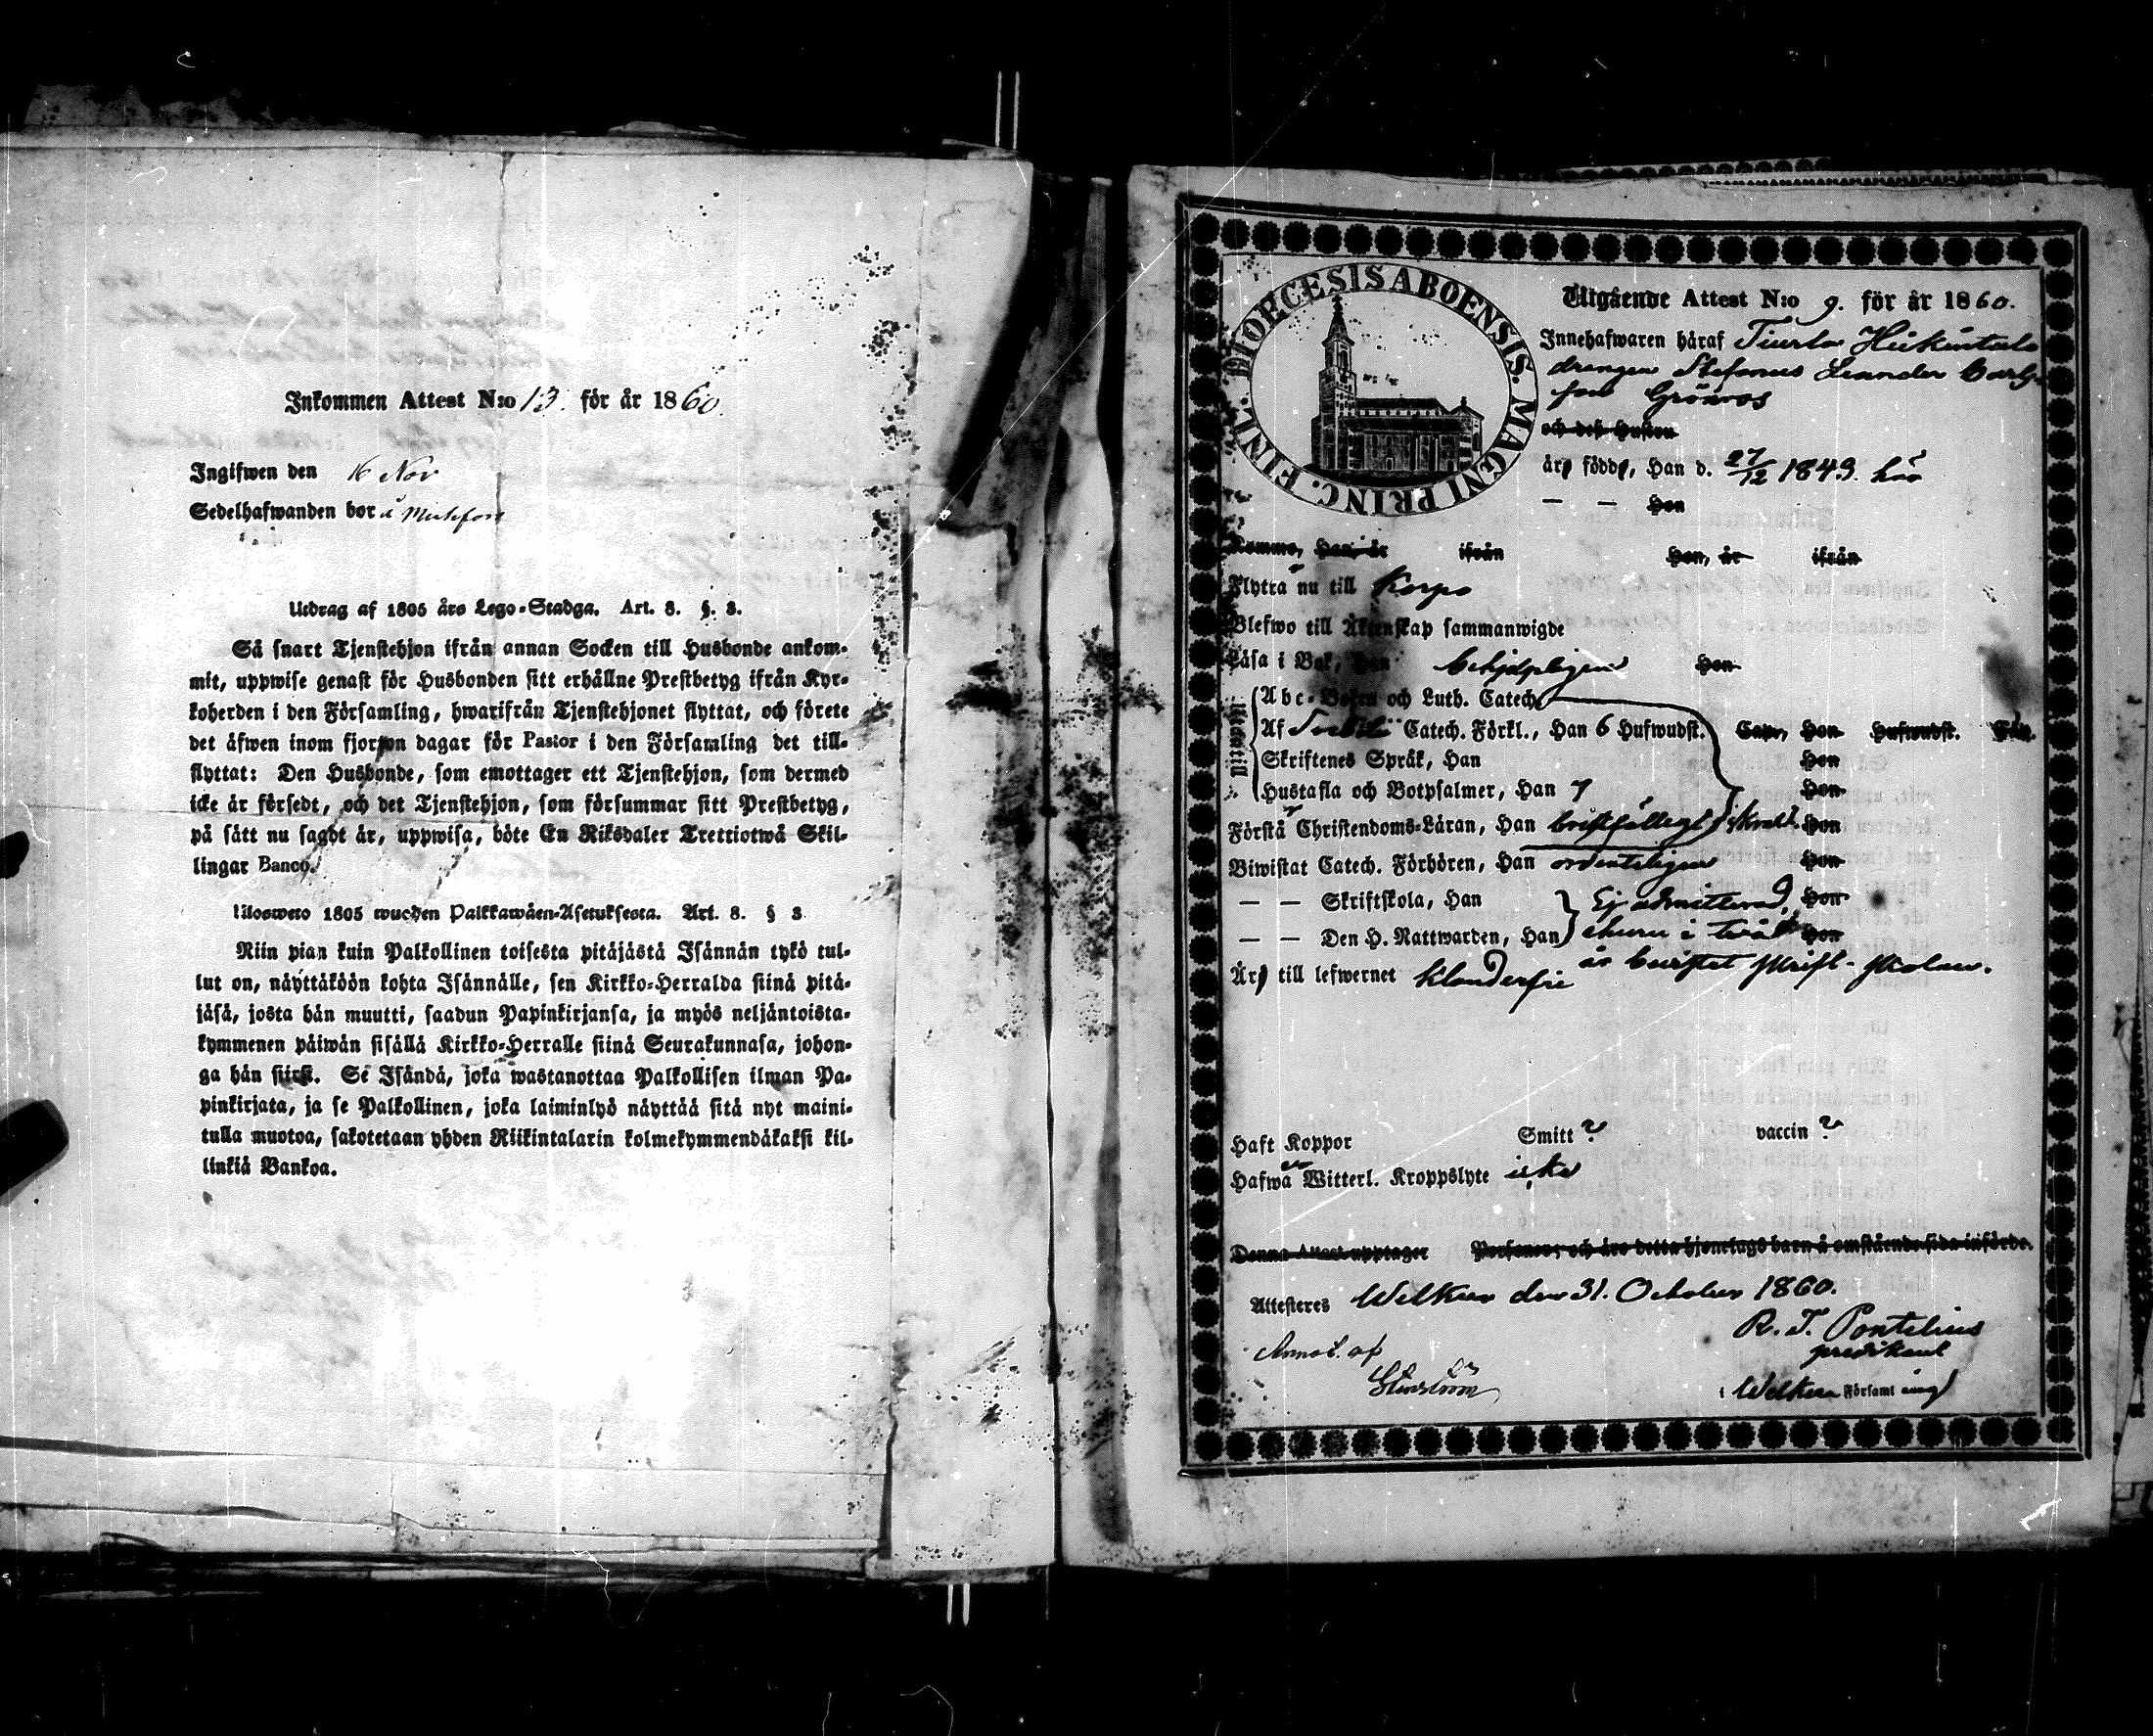 Inkommen Attest N:o 13. för år 1860.
Ingifwen den 16 Nov
Sedelhafwanden bor i
Utdrag af 1805 års Lego-Stadga. Art. 8. §. 3.
Så snart Tjenstehjon ifrån annan Socken till Husbonde ankom-
mit, uppwise genast för Husbonden sitt erhållne Prestbetyg ifrån Kyr-
koherden i den Församling, hwarifrån Tjenstehjonet flyttat, och förete
det äfwen inom fjorton dagar för Pastor i den Församling det till-
flyttat: Den Husbonde, som emottager ett Tjenstehjon, som dermed
icke är försedt, och det Tjenstehjon, som försummar sitt Prestbetyg,
på sätt nu sagdt är, uppwisa, böte En Riksdaler Trettiotwå Skil-
lingar Banco.
Ulosweto 1805 wuoden Palkkawäen-Asetuksesta. Art. 8. § 3
Niin pian kuin Palkollinen toisesta pitäjästä Isännän tykö tul-
lut on, näyttäköön kohta Isännälle, sen Kirkko-Herralda siinä pitä-
jäsä, josta hän muutti, saadun Papinkirjansa, ja myös neljäntoista-
kymmenen päiwän sisällä Kirkko-Herralle siinä Seurakunnasa, johon-
ga hän siirst. Se Isändä, joka wastanottaa Palkollisen ilman Pa-
pinkirjata, ja se Palkollinen, joka laiminlyö näyttää sitä nyt maini-
tulla muotoa, sakotetaan yhden Riikintalarin kolmekymmendäkaksi kil-
linkiä Bankoa.
DIOECESIS ABOENSIS. MAGNI PRINC. FINL.
Utgående Attest N:o 9. för år 1860.
Innehafwaren häraf Tiurla Heikintalo
drengen Stefanus Leander Carls-
son Grönroos
och deß Hustru
är född, Han d. 27/12 1843. här
— — Hon
Kommo, Han, år ifrån Hon, år ifrån
Flyttar nu till Korpo
Blefwo till Äktenskap sammanwigde
Läsa i Bok, Han behjelpligen Hon
Utantill
Abc-Boken och Luth. Catech.
Af Catech. Förkl., Han 6 Hufwudst. Cap., Hon Hufwudst. Cap.
Skriftenes Språk, Han Hon
Hustafla och Botpsalmer, Han 7 Hon
Förstår Christendoms-Läran, Han bristfälligt Hon
Biwistat Catech. Förhören, Han ordenteligen Hon
— — Skriftskola, Han Ej admitterad, Hon
— — Den H. Nattwarden, Han ehuru i två Hon
år bevistat skrift-skolan.
Är till lefwernet klanderfri
Haft Koppor Smitt ? vaccin ?
Hafwa Witterl. Kroppslyte icke
Denna Attest upptager Personer, och äro detta hjonelags barn å omstående sida införde.
Attesteres Welkua den 31. October 1860.
R. J. Pontelius
predikant
Annot. af
i Welkua Församling